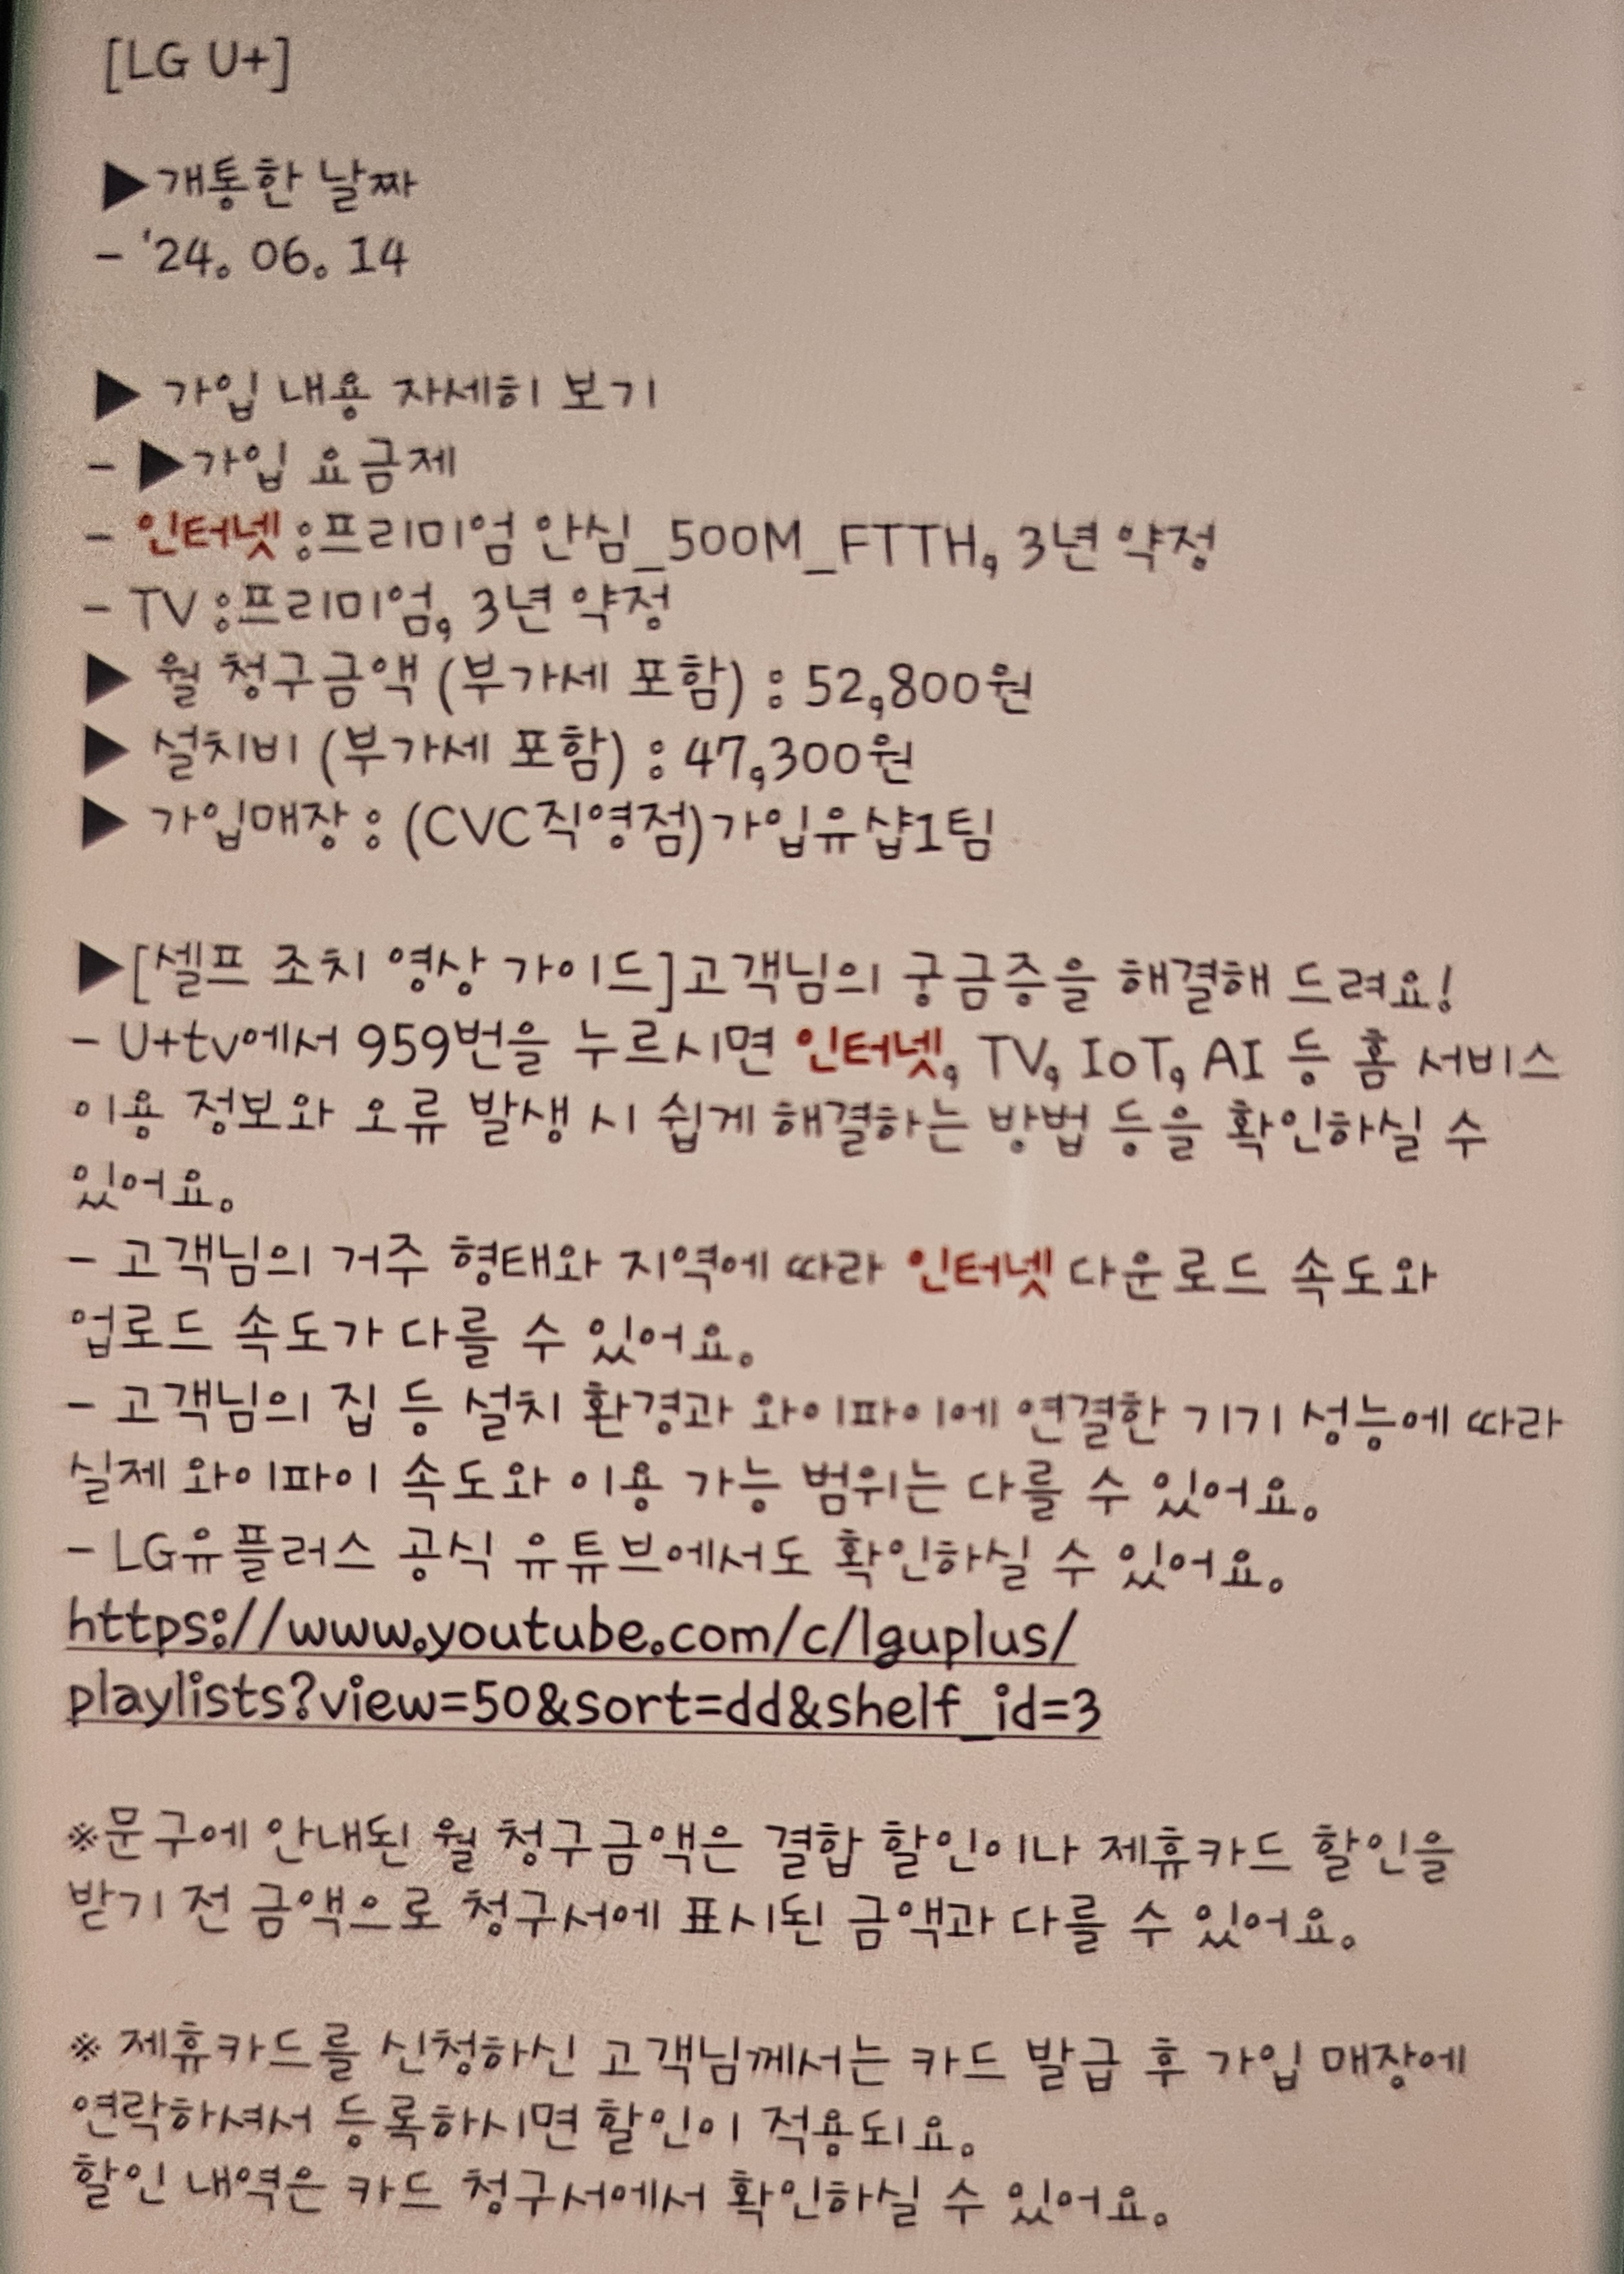 [LG U+]
▶개통한 날짜
- '24. 06. 14
▶ 가입 내용 자세히 보기
- ▶가입 요금제
- 인터넷 :프리미엄 안심_500M_FTTH, 3년 약정
- TV :프리미엄, 3년 약정
▶ 월 청구금액 (부가세 포함) : 52,800원
▶ 설치비 (부가세 포함) : 47,300원
▶ 가입매장 : (CVC직영점)가입유샵1팀
▶[셀프 조치 영상 가이드]고객님의 궁금증을 해결해 드려요!
- U+tv에서 959번을 누르시면 인터넷, TV, IoT, AI 등 홈 서비스
이용 정보와 오류 발생 시 쉽게 해결하는 방법 등을 확인하실 수
있어요.
- 고객님의 거주 형태와 지역에 따라 인터넷 다운로드 속도와
업로드 속도가 다를 수 있어요.
- 고객님의 집 등 설치 환경과 와이파이에 연결한 기기 성능에 따라
실제 와이파이 속도와 이용 가능 범위는 다를 수 있어요.
- LG유플러스 공식 유튜브에서도 확인하실 수 있어요.
https://www.youtube.com/c/lguplus/
playlists?view=50&sort=dd&shelf_id=3
※문구에 안내된 월 청구금액은 결합 할인이나 제휴카드 할인을
받기 전 금액으로 청구서에 표시된 금액과 다를 수 있어요.
※ 제휴카드를 신청하신 고객님께서는 카드 발급 후 가입 매장에
연락하셔서 등록하시면 할인이 적용되요.
할인 내역은 카드 청구서에서 확인하실 수 있어요.